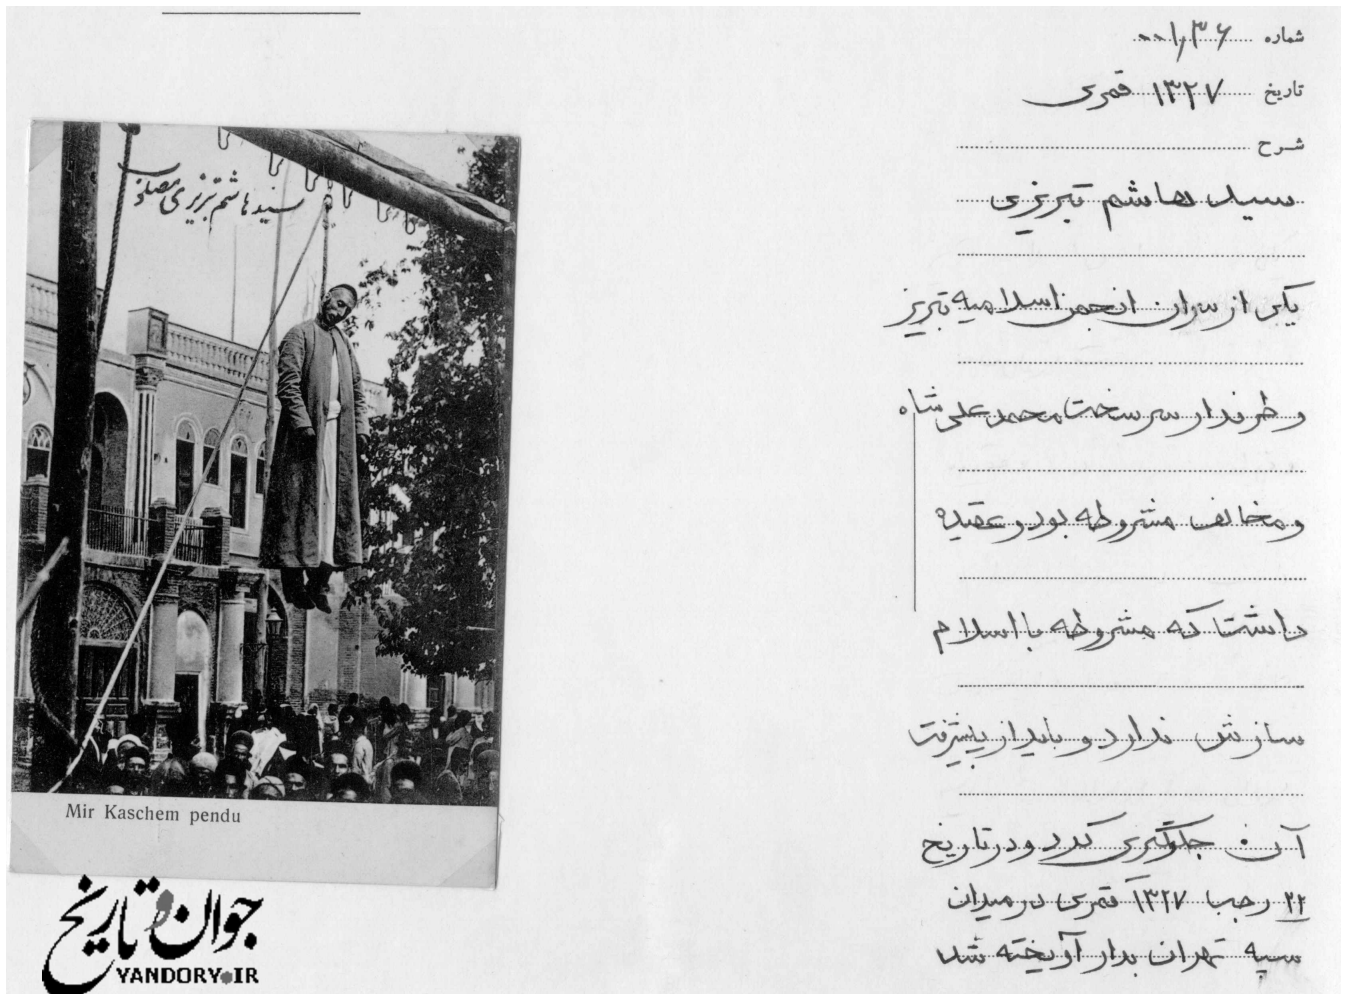 شماره ۱۳۶
تاریخ ۱۳۲۷ قمری
شرح
سید هاشم تبریزی
یکی از سران انجمن اسلامیه تبریز
و طرفدار سرسخت محمد علی شاه
و مخالف مشروطه بود و عقیده
داشت که مشروطه با اسلام
سازش ندارد و باید از پیشرفت
آن جلوگیری کرد و در تاریخ
۲۲ رجب ۱۳۲۷ قمری در میدان
سپه تهران بدار آویخته شد
سید هاشم تبریزی مصلوب
Mir Kaschem pendu
جوان و تاریخ
YANDORY.IR